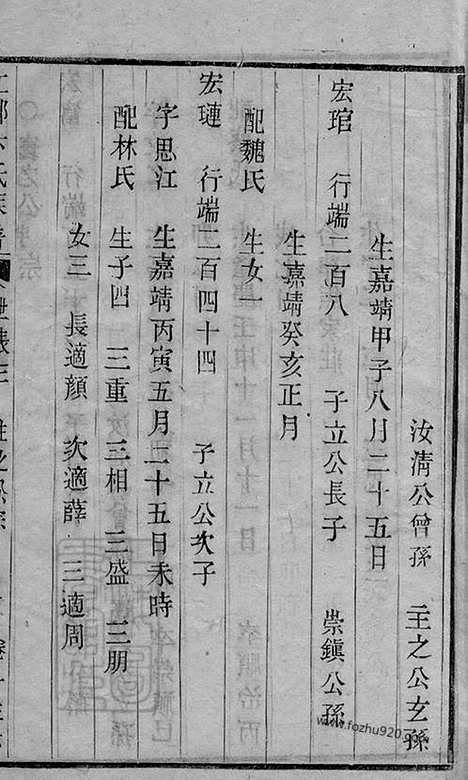 汝清公曾孫 玉之公玄孫
生嘉靖甲子八月二十五日
宏琯 行端二百八 子立公長子 崇鎮公孫
生嘉靖癸亥正月
配魏氏 生女一
宏璉 行端二百四十四 子立公次子
字思江 生嘉靖丙寅五月二十五日未時
配林氏 生子四 三重 三相 三盛 三朋
女三 長適顏 次適薛 三適周
www.fozhu920.com